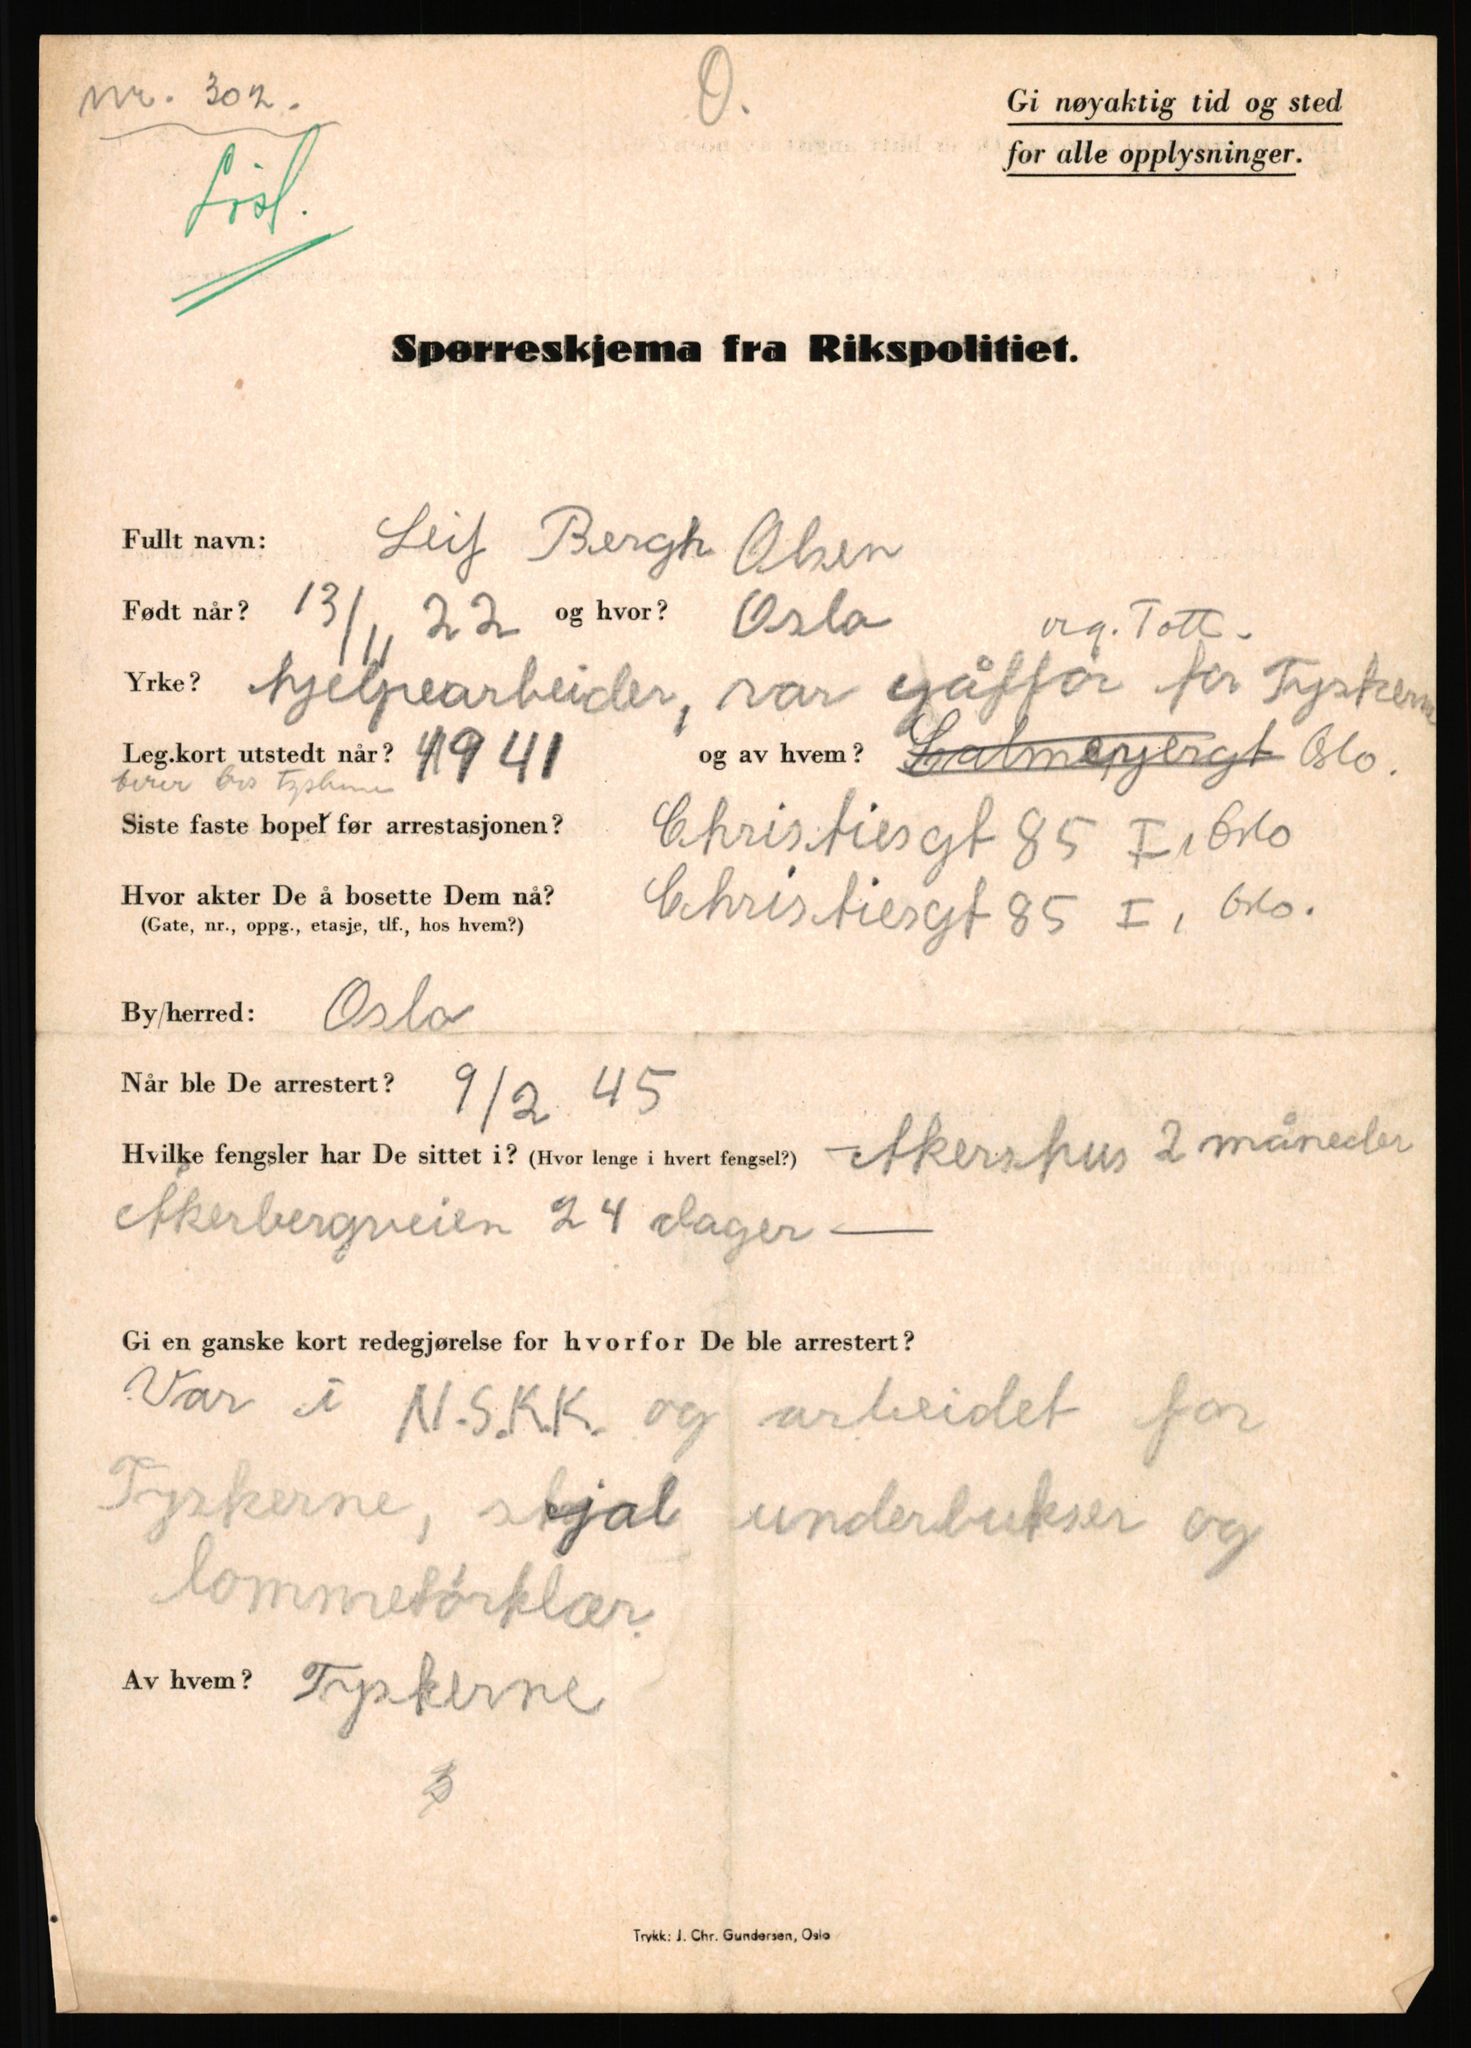 nr. 302.
O.
Gi nøyaktig tid og sted
for alle opplysninger.
Spørreskjema fra Rikspolitiet.
Fullt navn: Leif Bergh Olsen
Født når? 13/11 22 og hvor? Oslo
org. Tott.
Yrke? hjelpearbeider, var sjåffør for Tyskerne
Leg.kort utstedt når? 1941 og av hvem? Oslo.
Siste faste bopel før arrestasjonen? Christiesgt 85 I, Oslo
Hvor akter De å bosette Dem nå? Christiesgt 85 I, Oslo.
(Gate, nr., oppg., etasje, tlf., hos hvem?)
By/herred: Oslo
Når ble De arrestert? 9/2 45
Hvilke fengsler har De sittet i? (Hvor lenge i hvert fengsel?) Akershus 2 måneder
Åkerbergveien 24 dager —
Gi en ganske kort redegjørelse for hvorfor De ble arrestert?
Var i N.S.K.K. og arbeidet for
Tyskerne, stjal underbukser og
lommetørklær.
Av hvem? Tyskerne
Trykk: J. Chr. Gundersen, Oslo